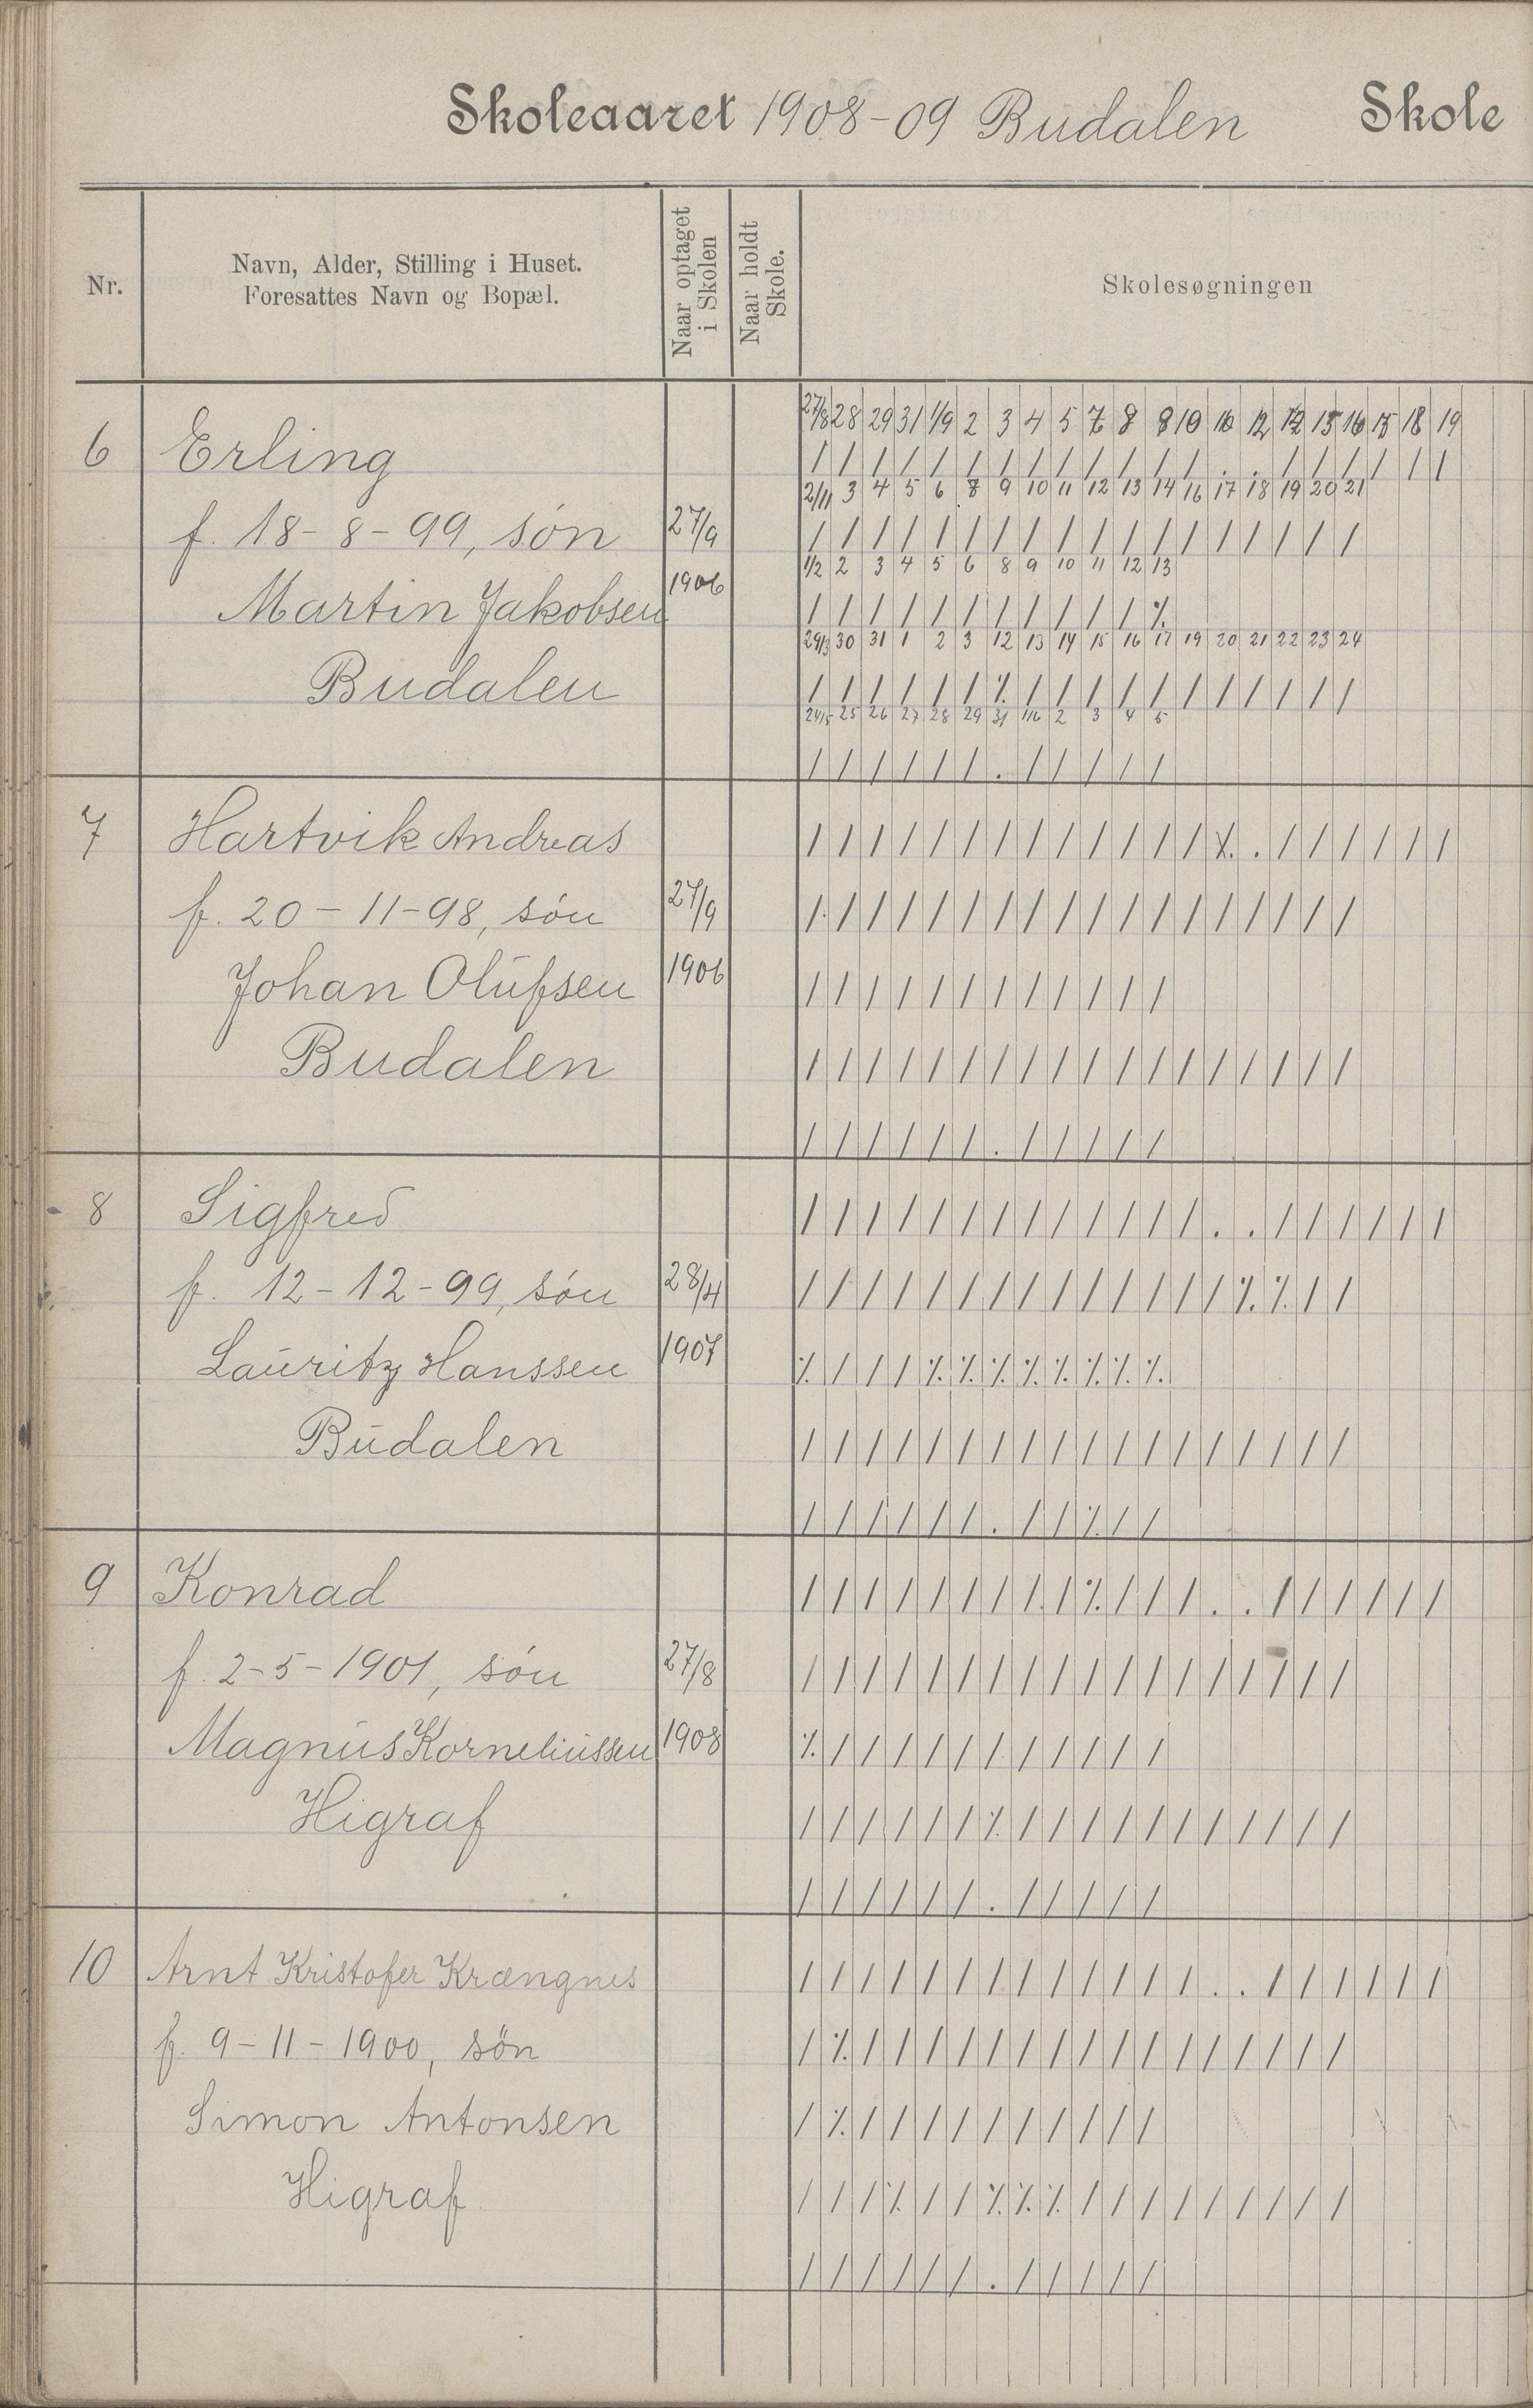 Skoleaaret 1908-09 Budalen Skole
Nr.
Navn, Alder, Stilling i Huset.
Foresattes Navn og Bopæl.
Naar optaget
i Skolen
Naar holdt
Skole.
Skolesøgningen
27/8 28 29 31 1/9 2 3 4 5 7 8 18 19
6 Erling
/ / / / / / / / / / / / / . . / / / / / /
2/11 3 4 5 6 9 10 11 12 13 14 16 17 18 19 20 21
f. 18-8-99, søn 27/9
/ / / / / / / / / / / / / / / / / /
1/2 2 3 4 5 6 8 9 10 11 12 13
1906
Martin Jakobsen
/ / / / / / / / / / / ٪
29/3 30 31 1 2 3 12 13 14 15 16 17 19 20 21 22 23 24
Budalen
/ / / / / / ٪ / / / / / / / / / / /
24/5 25 26 27 28 29 31 1/6 2 3 4 5
/ / / / / / . / / / / /
7 Hartvik Andreas
f. 20-11-98, søn 27/9
/ / / / / / / / / / / / / / / / / /
Johan Olufsen 1906
/ / / / / / / / / / / /
Budalen
/ / / / / / / / / / / / / / / / / /
/ / / / / / . / / / / /
8 Sigfred
/ / / / / / / / / / / / / . . / / / / / /
f. 12-12-99, søn 28/4
/ / / / / / / / / / / / / / ٪ ٪ / /
Lauritz Hanssen 1907
٪ / / / ٪ ٪ ٪ ٪ ٪ ٪ ٪ ٪
Budalen
/ / / / / / / / / / / / / / / / / /
/ / / / / / . / / ٪ / /
9 Konrad
/ / / / / / / / / ٪ / / / . . / / / / / /
f. 2-5-1901, søn 27/8
/ / / / / / / / / / / / / / / / / /
Magnus Korneliussen 1908
٪ / / / / / / / / / / /
Higraf
/ / / / / / ٪ / / / / / / / / / / /
/ / / / / / . / / / / /
10 Arnt Kristofer Krængnes
/ / / / / / / / / / / / / . . / / / / / /
f. 9-11-1900, søn
/ ٪ / / / / / / / / / / / / / / / /
Simon Antonsen
/ ٪ / / / / / / / / / /
Higraf
/ / / ٪ / / ٪ ٪ ٪ / / / / / / / / /
/ / / / / / . / / / / /